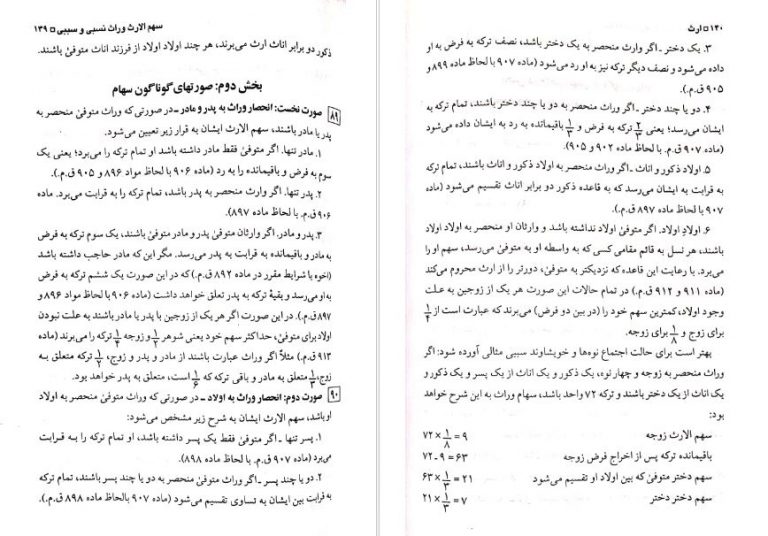 سهم الارث وراث نسبی و سببی □ ۱۳۹
ذکور دو برابر اناث ارث می‌برند، هر چند اولاد اولاد از فرزند اناث متوفیٰ باشند.
بخش دوم: صورتهای گوناگون سهام
۸۹ صورت نخست: انحصار وراث به پدر و مادر ـ در صورتی که وراث متوفیٰ منحصر به
پدر یا مادر باشند، سهم الارث ایشان به قرار زیر تعیین می‌شود.
۱. مادر تنها. اگر متوفیٰ فقط مادر داشته باشد او تمام ترکه را می‌برد؛ یعنی یک
سوم به فرض و باقیمانده را به رد (ماده ۹۰۶ با لحاظ مواد ۸۹۶ و ۹۰۵ ق.م.).
۲. پدر تنها. اگر وارث منحصر به پدر باشد، تمام ترکه را به قرابت می‌برد. ماده
۹۰۶ ق.م. با لحاظ ماده ۸۹۷).
۳. پدر و مادر. اگر وارثان متوفیٰ پدر و مادر متوفیٰ باشند، یک سوم ترکه به فرض
به مادر و باقیمانده به قرابت به پدر می‌رسد. مگر این که مادر حاجب داشته باشد
(اخوه با شرایط مقرر در ماده ۸۹۲ ق.م.) که در این صورت یک ششم ترکه به فرض
به او می‌رسد و بقیهٔ ترکه به پدر تعلق خواهد داشت (ماده ۹۰۶ با لحاظ مواد ۸۹۶ و
۸۹۷ ق.م.). در این صورت اگر هر یک از زوجین با پدر یا مادر باشند به علت نبودن
اولاد برای متوفیٰ، حداکثر سهم خود یعنی شوهر ۱/۲ و زوجه ۱/۴ ترکه را می‌برند (ماده
۹۱۳ ق.م.) مثلاً اگر وراث عبارت باشند از مادر و پدر و زوج، ۱/۲ ترکه متعلق به
زوج، ۱/۳ متعلق به مادر و باقی ترکه که ۱/۶ است، متعلق به پدر خواهد بود.
۹۰ صورت دوم: انحصار وراث به اولاد ـ در صورتی که وراث متوفیٰ منحصر به اولاد
او باشد، سهم الارث ایشان به شرح زیر مشخص می‌شود:
۱. پسر تنها ـ اگر متوفیٰ فقط یک پسر داشته باشد، او تمام ترکه را به قرابت
می‌برد (ماده ۹۰۷ ق.م. با لحاظ ماده ۸۹۸).
۲. دو یا چند پسر ـ اگر وراث متوفیٰ منحصر به دو یا چند پسر باشند، تمام ترکه
به قرابت بین ایشان به تساوی تقسیم می‌شود (ماده ۹۰۷ بالحاظ ماده ۸۹۸ ق.م.).
۱۴۰ □ ارث
۳. یک دختر ـ اگر وارث منحصر به یک دختر باشد، نصف ترکه به فرض به او
داده می‌شود و نصف دیگر ترکه نیز به او رد می‌شود (ماده ۹۰۷ با لحاظ ماده ۸۹۹ و
۹۰۵ ق.م.).
۴. دو یا چند دختر ـ اگر وراث منحصر به دو یا چند دختر باشند، تمام ترکه به
ایشان می‌رسد؛ یعنی ۲/۳ ترکه به فرض و ۱/۳ باقیمانده به رد به ایشان داده می‌شود
(ماده ۹۰۷ ق.م. با لحاظ ماده ۹۰۲ و ۹۰۵).
۵. اولاد ذکور و اناث ـ اگر وراث منحصر به اولاد ذکور و اناث باشند، تمام ترکه
به قرابت به ایشان می‌رسد که به قاعده ذکور دو برابر اناث تقسیم می‌شود (ماده
۹۰۷ با لحاظ ماده ۸۹۷ ق.م.).
۶. اولادِ اولاد. اگر متوفیٰ اولاد نداشته باشد و وارثان او منحصر به اولاد اولاد
باشند، هر نسل به قائم مقامی کسی که به واسطه او به متوفیٰ می‌رسد، سهم او را
می‌برد. با رعایت این قاعده که نزدیکتر به متوفیٰ، دورتر را از ارث محروم می‌کند
(ماده ۹۱۱ و ۹۱۲ ق.م.) در تمام حالات این صورت هر یک از زوجین به علت
وجود اولاد، کمترین سهم خود را (در بین دو فرض) می‌برند که عبارت است از ۱/۴
برای زوج و ۱/۸ برای زوجه.
بهتر است برای حالت اجتماع نوه‌ها و خویشاوند سببی مثالی آورده شود: اگر
وراث منحصر به زوجه و چهار نوه، یک ذکور و یک اناث از یک پسر و یک ذکور و
یک اناث از یک دختر باشند و ترکه ۷۲ واحد باشد، سهام وراث به این شرح خواهد
بود:
سهم الارث زوجه ۷۲ × ۱/۸ = ۹
باقیمانده ترکه پس از اخراج فرض زوجه ۷۲ - ۹ = ۶۳
سهم دختر متوفیٰ که بین اولاد او تقسیم می‌شود ۶۳ × ۱/۳ = ۲۱
سهم دختر دختر ۲۱ × ۱/۳ = ۷